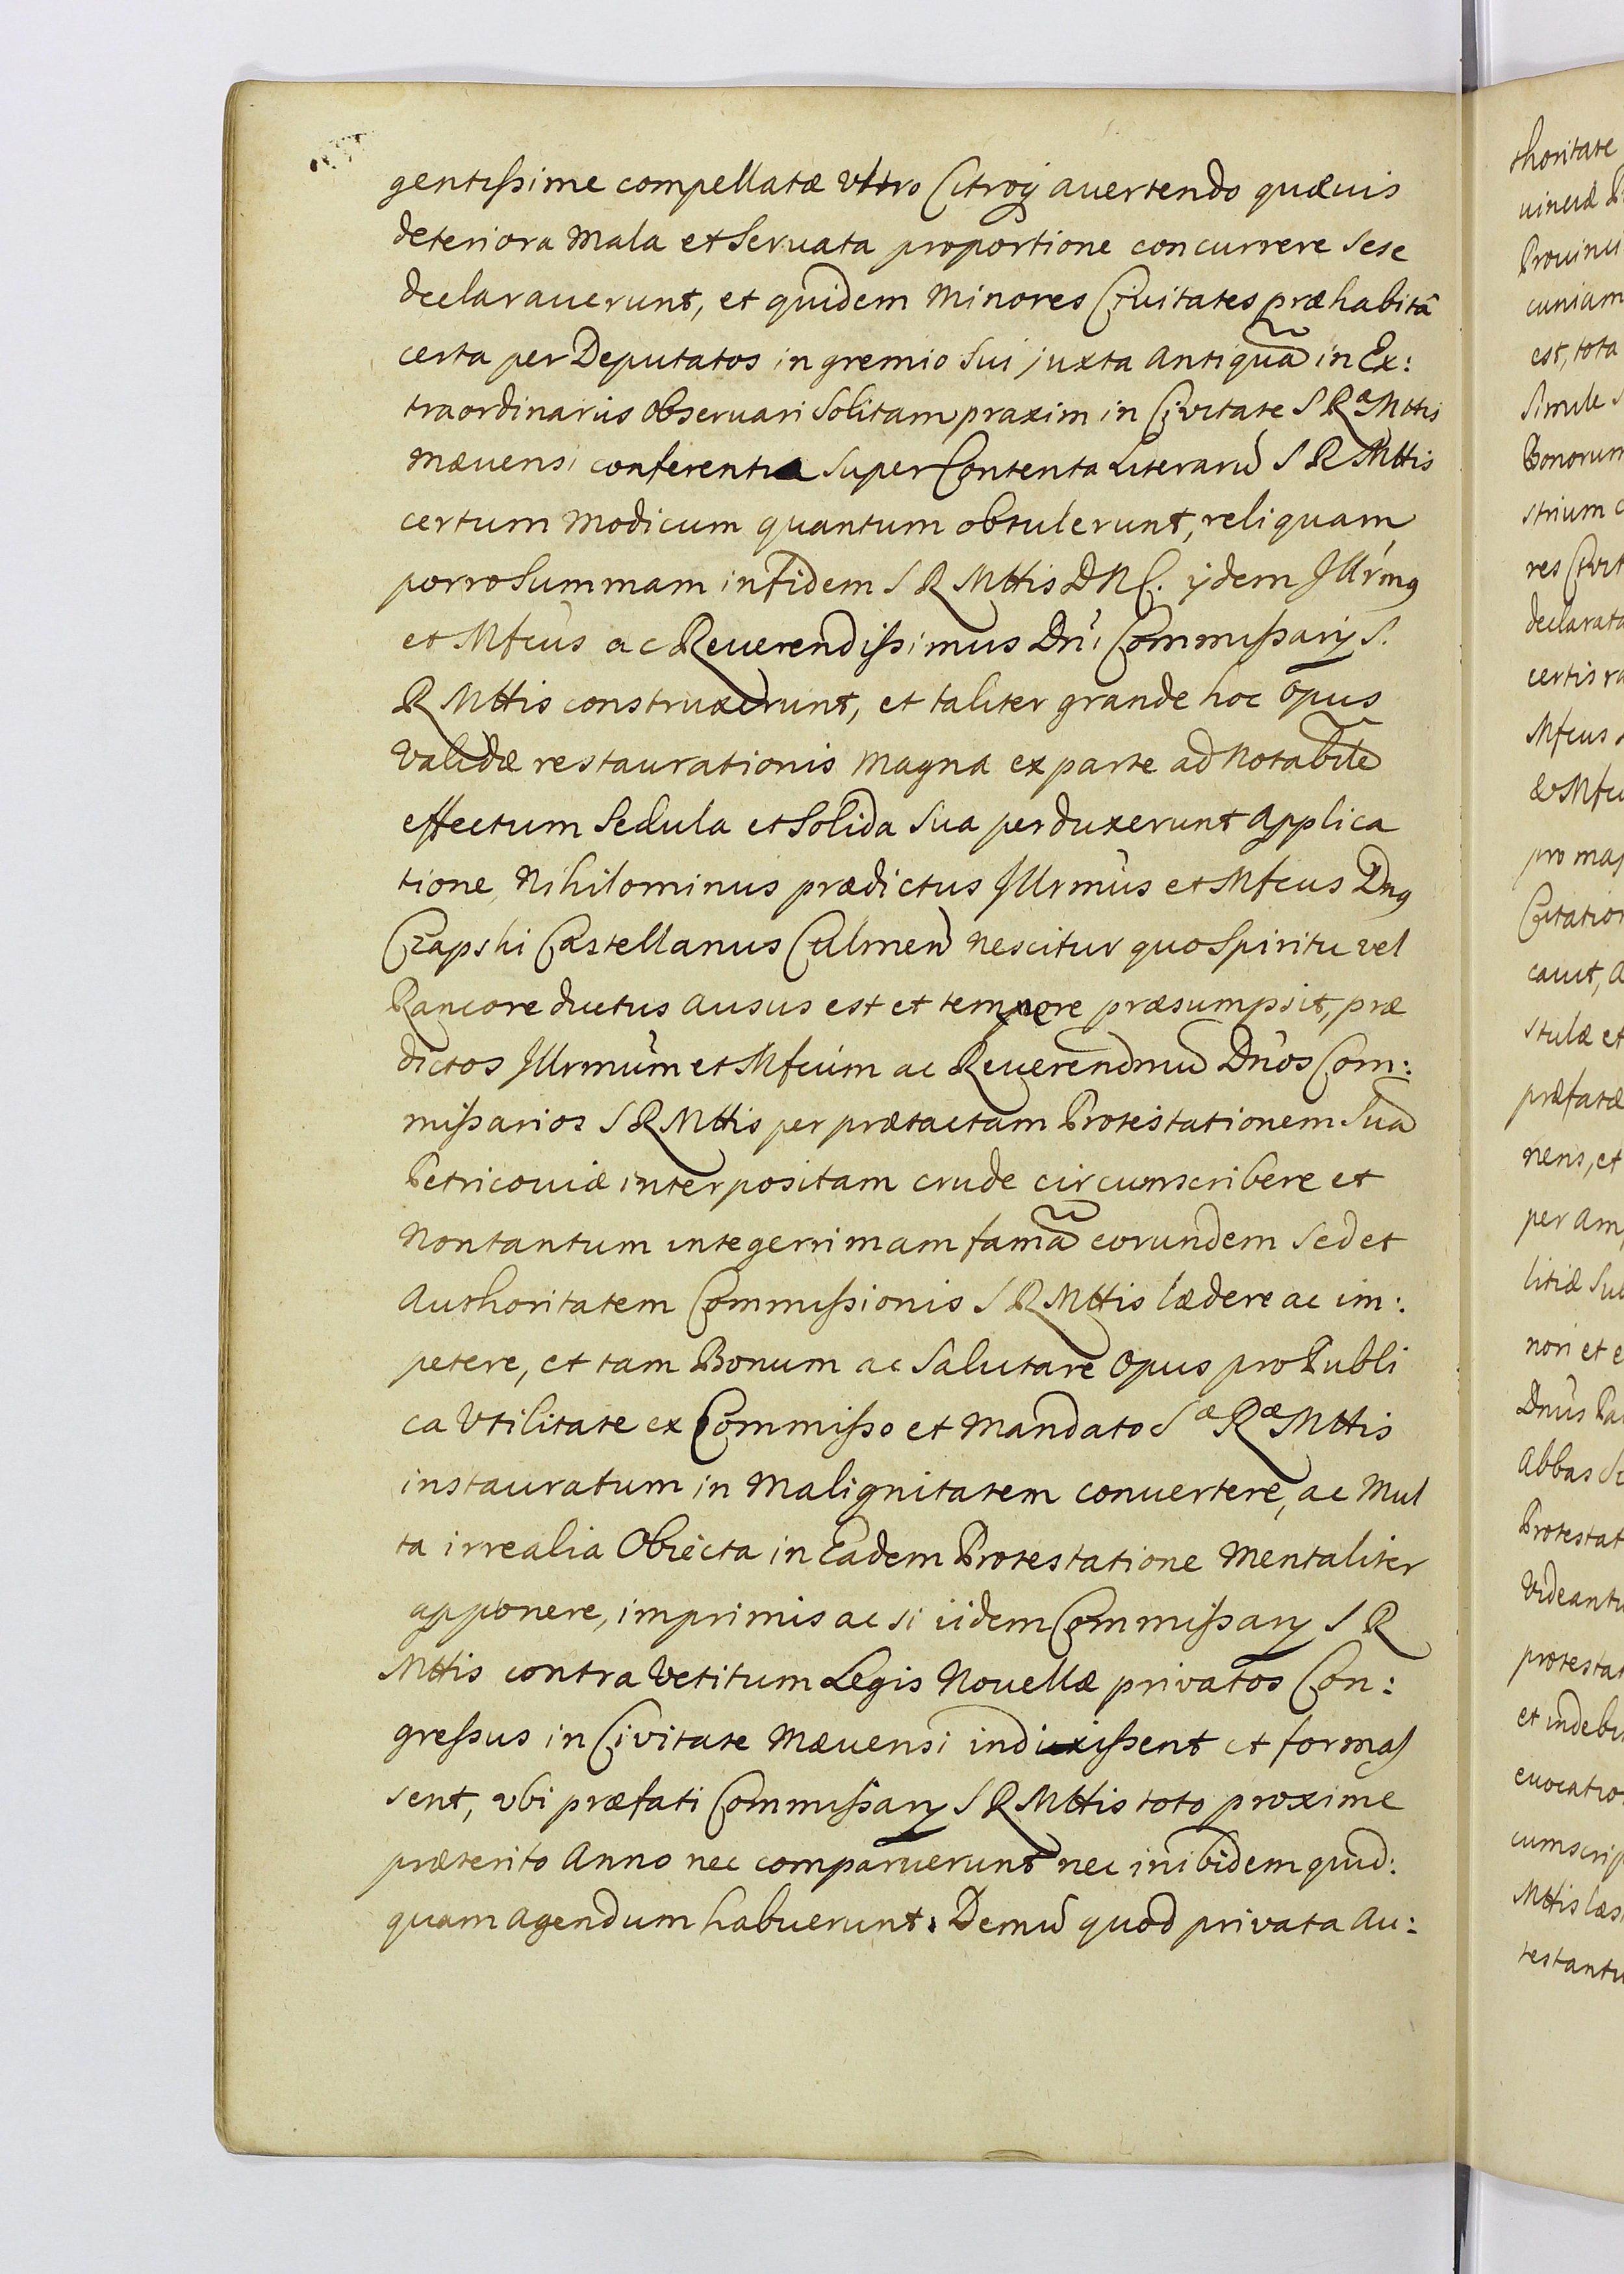 gentissime compellatæ vltro Citroq̃ auertendo quæuis
deteriora mala et Seruata proportione concurrere sese
declarauerunt, et quidem Minores Ciuitates præhabitâ
certa per Deputatos in gremio sui juxta Antiquã in Ex:
traordinariis obseruari Solitam praxim in Civitate S Rᵃ Mttis
mæuensi conferentia super Contenta Literarũ S R Mttis
certum modicum quantum obtulerunt, reliquam
porro Summam in fidem S R Mttis D N C. ijdem Jllrmq
et Mfcus ac Reuerendissimus Dni Commissarij S.
R Mttis construxerunt, et taliter grande hoc opus
validæ restaurationis magna ex parte ad Notabile
effectum Sedula et Solida sua perduxerunt Applica
tione, Nihilominus prædictus Jllrmus et Mfcus Dnq
Czapski Castellanus Culmeñ Nescitur quo Spiritu vel
Rancore ductus ausus est et tempore præsumpsit, præ
dictos Jllrmum et Mfcum ac Reuerendmũ Dnos Com:
missarios S R Mttis per prætactam Protestationem Suã
Petricouiæ interpositam crude circumscribere et
Nontantum integerrimam famã eorundem Sed et
Authoritatem Commissionis S R Mttis lædere ac im:
petere, et tam Bonum ac Salutare Opus pro Publi
ca Vtilitate ex Commisso et Mandato Sᵃ Rᵃ Mttis
instauratum in Malignitatem conuertere, ac Mul
ta irrealia Obiecta in Eadem Protestatione Mentaliter
apponere, imprimis ac si iidem Commissarij S R
Mttis contra Vetitum Legis Nouellæ privatos Con:
gressus in Civitate Mæuensi induxissent et formas
sent, vbi præfati Commissarij S R Mttis toto proxime
præterito Anno nec comparuerunt nec inibidem quid:
quam agendum habuerunt. Demũ quod privata Au:
thoritate
Provinci
cuniam
est, tota
Bonorum
strium
declarata
Mfcus
pro
Citation
cauit,
stulæ et
præfatæ
nens, et
per
litiæ
nori et
Dnus
Abbas
Protestat
Videantu
protestat
et indebi
euocatio
cumscrip
Mttis læs
testantu